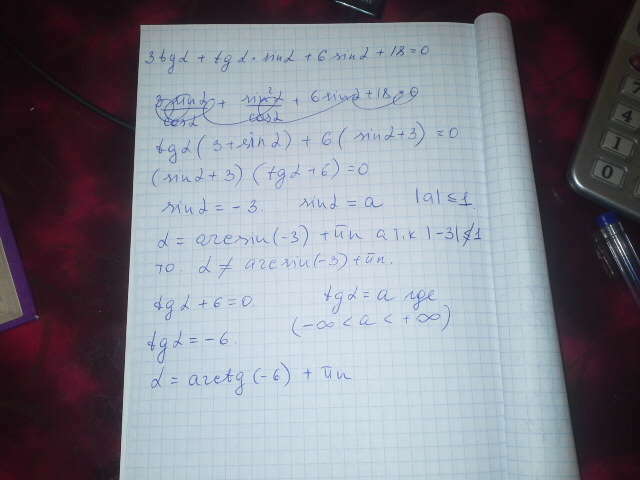 3tgα + tgα · sinα + 6 sinα + 18 = 0
3 sinα/cosα + sin²α/cosα + 6 sinα + 18 = 0
tgα (3 + sinα) + 6 (sinα + 3) = 0
(sinα + 3) (tgα + 6) = 0
sinα = -3. sinα = a |a| ≤ 1
α = arcsin(-3) + πn а т.к |-3| ≰ 1
то α ≠ arcsin(-3) + πn.
tgα + 6 = 0. tgα = a где
(-∞ < a < +∞)
tgα = -6.
α = arctg(-6) + πn
7
4
1
0